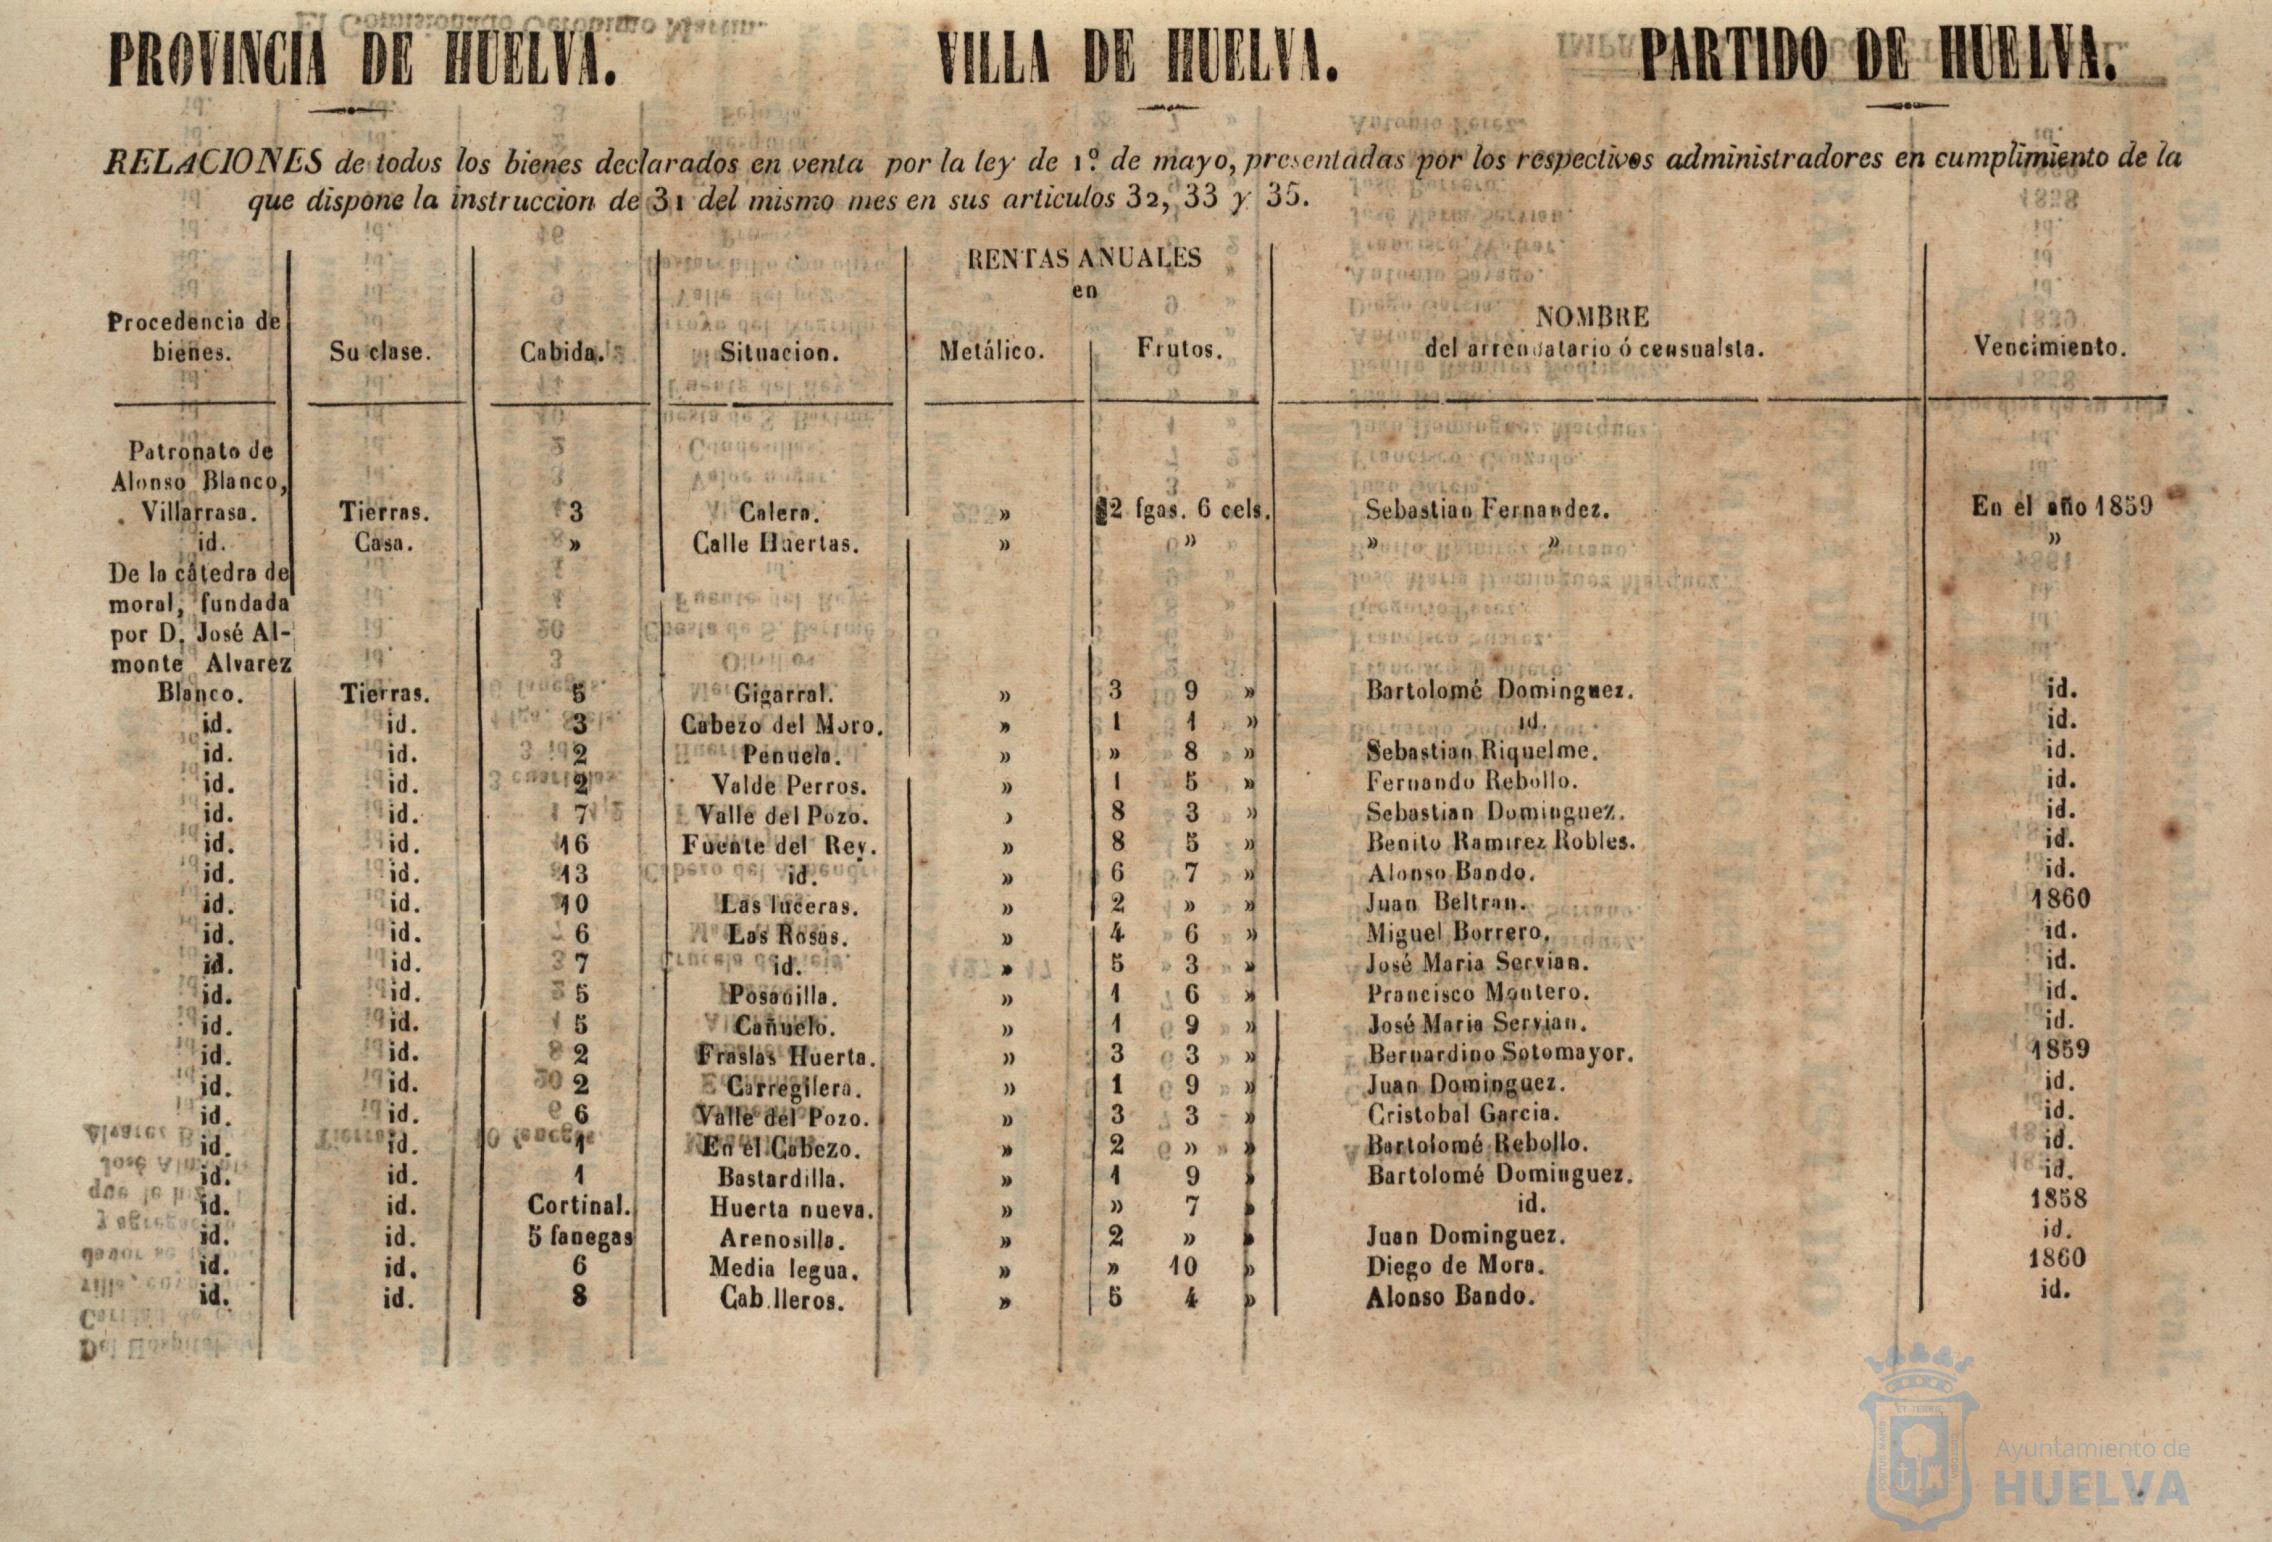 PROVINCIA DE HUELVA. VILLA DE HUELVA. PARTIDO DE HUELVA.
RELACIONES de todos los bienes declarados en venta por la ley de 1.º de mayo, presentadas por los respectivos administradores en cumplimiento de la
que dispone la instruccion de 31 del mismo mes en sus articulos 32, 33 y 35.
RENTAS ANUALES
en
Procedencia de bienes. Su clase. Cabida. Situacion. Metálico. Frutos. NOMBRE del arrendatario ó censualsta. Vencimiento.
Patronato de
Alonso Blanco,
Villarrasa. Tierras. 3 Calera. » 2 fgas. 6 cels. Sebastian Fernandez. En el año 1859
id. Casa. » Calle Huertas. » » » » »
De la cátedra de
moral, fundada
por D. José Al-
monte Alvarez
Blanco. Tierras. 5 Gigarral. » 3 9 » Bartolomé Dominguez. id.
id. id. 3 Cabezo del Moro. » 1 1 » id. id.
id. id. 2 Penuela. » » 8 » Sebastian Riquelme. id.
id. id. 2 Valde Perros. » 1 5 » Fernando Rebollo. id.
id. id. 7 Valle del Pozo. » 8 3 » Sebastian Dominguez. id.
id. id. 16 Fuente del Rey. » 8 5 » Benito Ramirez Robles. id.
id. id. 13 id. » 6 7 » Alonso Bando. id.
id. id. 10 Las luceras. » 2 » » Juan Beltran. 1860
id. id. 6 Las Rosas. » 4 6 » Miguel Borrero. id.
id. id. 7 id. » 5 3 » José Maria Servian. id.
id. id. 5 Posadilla. » 1 6 » Francisco Montero. id.
id. id. 5 Cañuelo. » 1 9 » José Maria Servian. id.
id. id. 2 Fraslas Huerta. » 3 3 » Bernardino Sotomayor. 1859
id. id. 2 Carregilera. » 1 9 » Juan Dominguez. id.
id. id. 6 Valle del Pozo. » 3 3 » Cristobal Garcia. id.
id. id. 1 En el Cabezo. » 2 » » Bartolomé Rebollo. id.
id. id. 1 Bastardilla. » 1 9 » Bartolomé Dominguez. id.
id. id. Cortinal. Huerta nueva. » » 7 » id. 1858
id. id. 5 fanegas Arenosilla. » 2 » » Juan Dominguez. id.
id. id. 6 Media legua. » » 10 » Diego de Mora. 1860
id. id. 8 Cab lleros. » 5 4 » Alonso Bando. id.
Ayuntamiento de
HUELVA